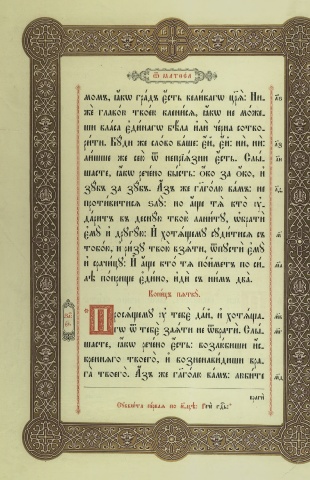 Ѿ МАТѲЕА
момъ, ꙗ҆́кѡ гра́дъ є҆́сть вели́кагѡ цр҃ѧ̀: Ни-
же главо́ю твоє́ю клени́сѧ, ꙗ҆́кѡ не мо́же-
ши вла́са є҆ди́нагѡ бѣ́ла и҆лѝ че́рна сотво-
ри́ти. Бꙋ́ди же сло́во ва́ше: є҆́й, є҆́й: нѝ, нѝ:
ли́шше же сею̀ ѿ непрїѧ́зни є҆́сть. Слы́-
шасте, ꙗ҆́кѡ рече́но бы́сть: ѻ҆́ко за ѻ҆́ко, и҆
зꙋ́бъ за зꙋ́бъ. А҆́зъ же гл҃ю ва́мъ: не
проти́витисѧ ѕлꙋ̀: но а҆́ще тѧ̀ кто̀ ᲂу҆-
да́ритъ въ деснꙋ́ю твою̀ лани́тꙋ, ѡ҆братѝ
є҆мꙋ̀ и҆ дрꙋгꙋ́ю: И҆ хотѧ́щемꙋ сꙋди́тисѧ съ
тобо́ю, и҆ ри́зꙋ твою̀ взѧ́ти, ѿпꙋстѝ є҆мꙋ̀
и҆ срачи́цꙋ: И҆ а҆́ще кто̀ тѧ̀ по́йметъ по си́-
лѣ по́прище є҆ди́но, и҆дѝ съ ни́мъ два̀.
Коне́цъ пѧткꙋ̀.
Просѧ́щемꙋ ᲂу҆ тебѐ да́й, и҆ хотѧ́ща-
гѡ ѿ тебѐ заѧ́ти не ѿвратѝ. Слы́-
шасте, ꙗ҆́кѡ рече́но є҆́сть: возлю́биши и҆́с-
креннѧго твоего̀, и҆ возненави́диши вра-
га̀ твоего̀. А҆́зъ же гл҃ю ва́мъ: люби́те
врагѝ